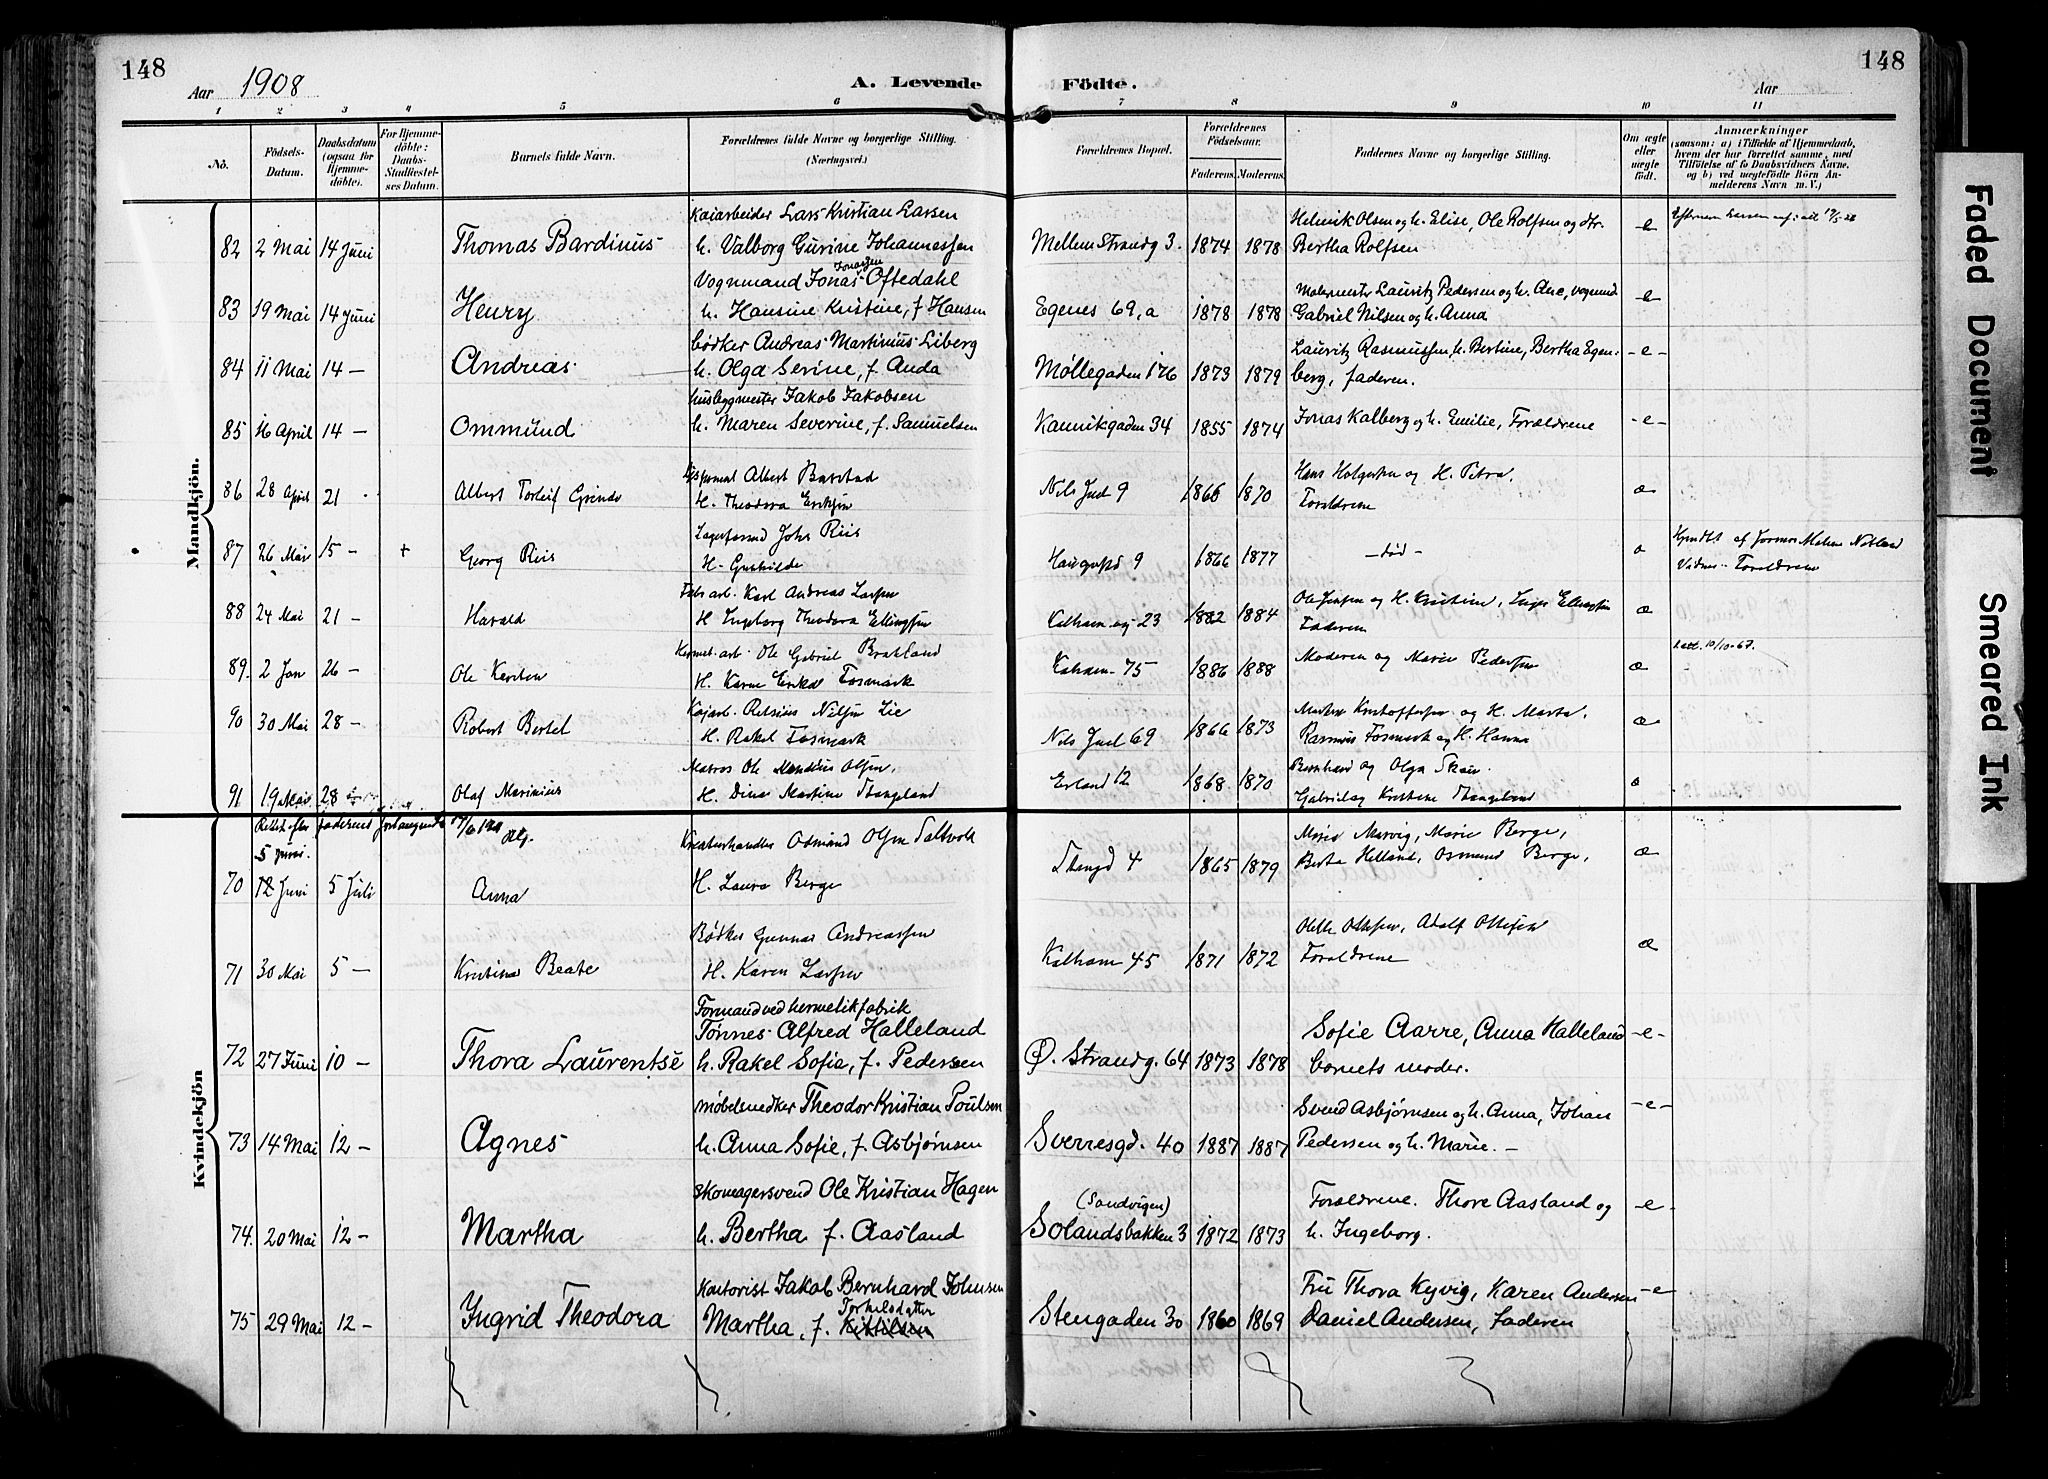 148
Aar 1908
A. Levende
Födte.
148
Aar
1 2 3 4 5 6 7 8 9 10 11
Nô.
Födsels-Datum.
Daabsdatum (ogsaa for Hjemme-döbte).
For Hjemme-döbte: Daabs-Stadfæstelses Datum.
Barnets fulde Navn.
Forældrenes fulde Navne og borgerlige Stilling. (Næringsvei.)
Forældrenes Bopæl.
Forældrenes Födselsaar.
Faderens. Moderens.
Faddernes Navne og borgerlige Stilling.
Om ægte eller uægte födt.
Anmærkninger
(saasom: a) i Tilfælde af Hjemmedaab, hvem der har forrettet samme, med Tilföielse af to Daabsvidners Navne, og b) ved uægtefödte Börn Anmelderens Navn m. V.)
Mandkjön.
Kaiarbeider Lars Kristian Larsen
82 2 Mai 14 Juni Thomas Bardinus h. Valborg Gurine Johannessen Mellem Strandg 3. 1874 1878
Helmik Olsen og h. Elise, Ole Rolfsen og dtr. Bertha Rolfsen -e-
Vognmand Jonas Jonassen Oftedahl
83 19 Mai 14 Juni Henry h. Hansine Kristine, f Hansen Egenes 69, a 1878 1878
Malermester Lauritz Pedersen og h. Ane, vognmd Gabriel Nilsen og h. Anna -e-
bødker Andreas Martinius Liberg
84 11 Mai 14 - Andreas h. Olga Serine, f. Anda Møllegaden 126 1873 1879
Lauritz Rasmussen h. Bertine, Bertha Egenberg, faderen. -e-
husbyggmester Jakob Jakobsen
85 16 April 14 - Ommund h. Maren Severine, f. Samuelsen Kannikgaden 34 1855 1874
Jonas Kalberg og h. Emilie, Forældrene -e-
Disponent Albert Barstad
86 28 April 21 Albert Torleif Grinde H. Theodora Eriksen Nils Juel 9 1866 1870
Hans Holgersen og H. Petra, Forældrene æ
Lagerformd Johs Riis
87 26 Mai 15 - + Georg Riis H. Gunhilde Haugvsd 9 1866 1877
- død - Vidner Forældrene
Fabr arb. Karl Andreas Larsen
88 24 Mai 21 - Harald H Ingeborg Theodora Ellingsen Kalham. 23 1882 1884
Ole Jensen og H. Kristine, Inger Ellingsen Faderen æ
Hermet. arb. Ole Gabriel Bratland
89. 2 Jan 26 - Ole Karsten H. Karen Erikke Fosmark Kalham. 75 1886 1888
Moderen og Marie Pedersen æ 10/10-67.
Kajarb. Retsius Nilsen Lie
90 30 Mai 28 - Robert Bertel H. Rakel Fosmark Nils Juel 69 1866 1873
Kristoffersen og H. Marta, Rasmus Fosmark og H. Hanna æ
Matros Ole Olsen,
91 19 Mai 28 Olaf Marinius H. Dina Martine Stangeland Erland 12 1868 1870
Bernhard og Olga Skair. Gabriel og Kristine Stangeland
Kvindekjön
Rettet efter faderens forlangende
5 Juni. Kreaturhandler Osmund Olsen Saltvold
70 12 Juni 5 Juli Anna H. Laura Berge Stangd 4 1865 1879
Maria Marvig, Marie Berge, Berta Helland, Osmund Berge, æ
Bødker Gunnar Andreassen
71 30 Mai 5 - Kristina Beate H. Karen Larsen Kalham 45 1871 1872
Olette Ottesen, Adolf Ottesen Forældrene æ
Formand ved hermetikfabrik
Tønnes Alfred Halleland
72 27 Juni 10 - Thora Laurentse h. Rakel Sofie, f. Pedersen Ø. Strandg. 64 1873 1878
Sofie Aarre, Anna Halleland barnets moder. -e-
møbelsnedker Theodor Kristian Poulsen
73 14 Mai 12 - Agnes h. Anna Sofie, f. Asbjørnsen Sverresgd. 40 1887 1887
Svend Asbjørnsen og h. Anna, Johan Pedersen og h. Marie. - -e-
Skomagersvend Ole Kristian Hagen
74. 20 Mai 12 - Martha h. Bertha f. Aasland (Sandvigen) Solandsbakken 3 1872 1873
Forældrene. Thore Aasland og h. Ingeborg. -e-
Kontorist Jakob Bernhard Johnsen
75 29 Mai 12 - Yngrid Theodora Martha, f. Torkelsdatter Stengaden 30 1860 1869
Fru Thora Kyvig, Karen Andersen Daniel Andersen, Faderen -e-
Faded Document
Smeared Ink